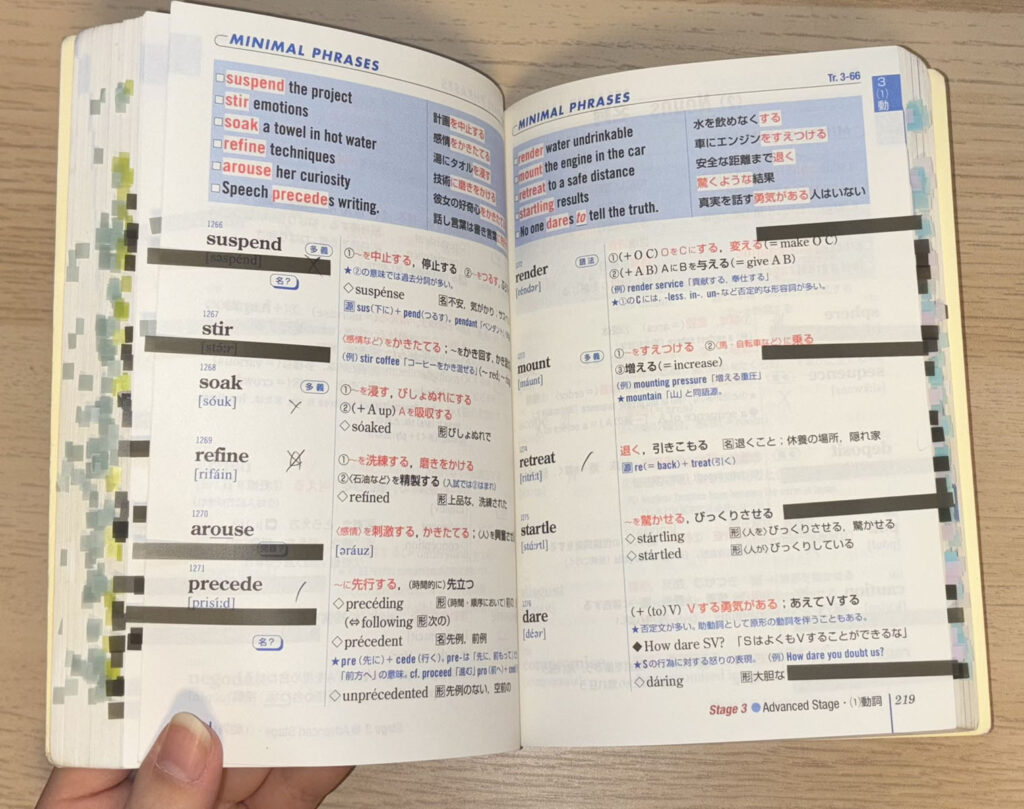 MINIMAL PHRASES
suspend the project
計画を中止する
stir emotions
感情をかきたてる
soak a towel in hot water
湯にタオルを浸す
refine techniques
技術に磨きをかける
arouse her curiosity
彼女の好奇心をかきたて
Speech precedes writing.
話し言葉は書き言葉に
1266
suspend
[səspénd]
多義
名?
①~を中止する，停止する ②~をつるす，
★②の意味では過去分詞が多い。
◇suspénse 名不安，気がかり，
源 sus(下に)＋pend(つるす)。pendant「ペンダント」
1267
stir
[stə́ːr]
〈感情など〉をかきたてる；~をかき回す，
(例) stir coffee「コーヒーをかき混ぜる」(~red; ~
1268
soak
[sóuk]
多義
①~を浸す，びしょぬれにする
②(＋A up) Aを吸収する
◇sóaked 形びしょぬれで
1269
refine
[rifáin]
①~を洗練する，磨きをかける
②〈石油など〉を精製する (入試では②はまれ)
◇refíned 形上品な，洗練された
1270
arouse
発音?
〈感情〉を刺激する，かきたてる；〈人〉を興奮させ
[əráuz]
1271
precede
[prisíːd]
名?
~に先行する，(時間的に)先立つ
◇precéding 形(時間・順序において)前の
(⇔following 形次の)
◇précedent 名先例，前例
★pre(先に)＋cede(行く)。pre-は「先に，前もって」
「前方へ」の意味。cf. proceed「進む」pro(前へ)＋
◇unprécedented 形先例のない，空前の
MINIMAL PHRASES
Tr. 3-66
3
(1)
動
render water undrinkable
水を飲めなくする
mount the engine in the car
車にエンジンをすえつける
retreat to a safe distance
安全な距離まで退く
startling results
驚くような結果
No one dares to tell the truth.
真実を話す勇気がある人はいない
render
[réndər]
語法
①(＋O C) OをCにする，変える(＝make O C)
②(＋A B) AにBを与える(＝give A B)
(例) render service「貢献する，奉仕する」
★①のCには，-less, in-, un-など否定的な形容詞が多い。
mount
[máunt]
多義
①~をすえつける ②〈馬・自転車など〉に乗る
③増える(＝increase)
(例) mounting pressure「増える重圧」
★mountain「山」と同語源。
1274
retreat
[ritríːt]
退く，引きこもる 名退くこと；休養の場所，隠れ家
源 re(＝back)＋treat(引く)
1275
startle
[stɑ́ːrtl]
~を驚かせる，びっくりさせる
◇stártling 形〈人を〉びっくりさせる，驚かせる
◇stártled 形〈人が〉びっくりしている
1276
dare
[déər]
(＋(to)V) Vする勇気がある；あえてVする
★否定文が多い。助動詞として原形の動詞を伴うこともある。
◆How dare SV? 「SはよくもVすることができるな」
★Sの行為に対する怒りの表現。(例) How dare you doubt us?
◇dáring 形大胆な
Stage 3 ●Advanced Stage・(1)動詞 219